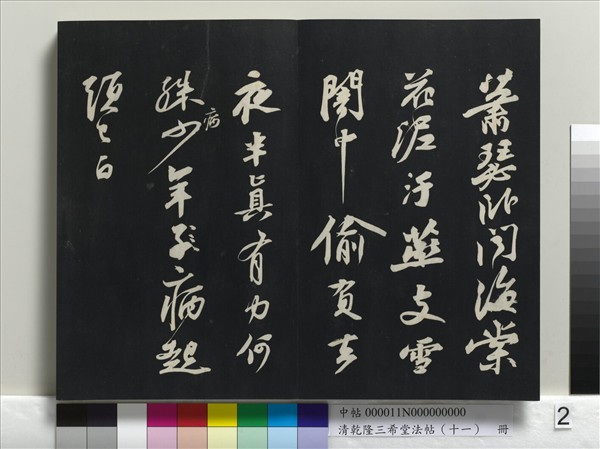 蕭瑟臥聞海棠
花泥汙燕支雪
闇中偷負去
夜半真有力何
殊病少年子病起
頭已白
中帖 000011N000000000
清乾隆三希堂法帖（十一） 冊
2